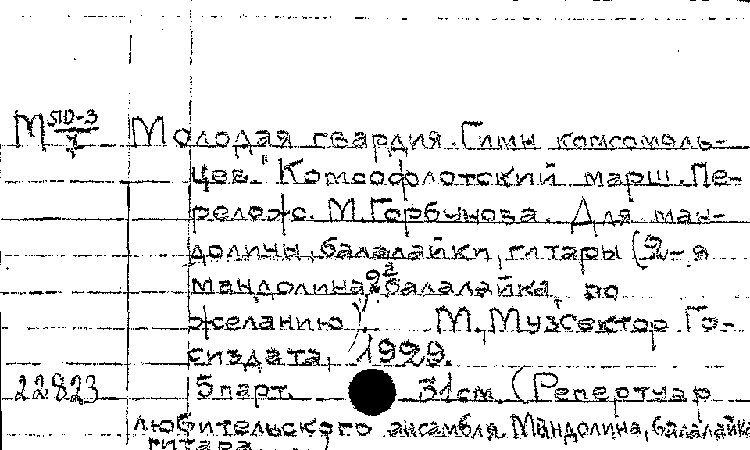 М 510-3/7 Молодая гвардия. Гимн комсомоль-
цев. "Комсофлотский марш. Пе-
релож. М. Горбунова. Для ман-
долины, балалайки, гитары (2-я
мандолина, 2я балалайка, по
желанию). М., Музсектор Го-
сиздата, 1929.
22823 5 парт. 31 см. (Репертуар
любительского ансамбля Мандолина, балалайка
гитара)